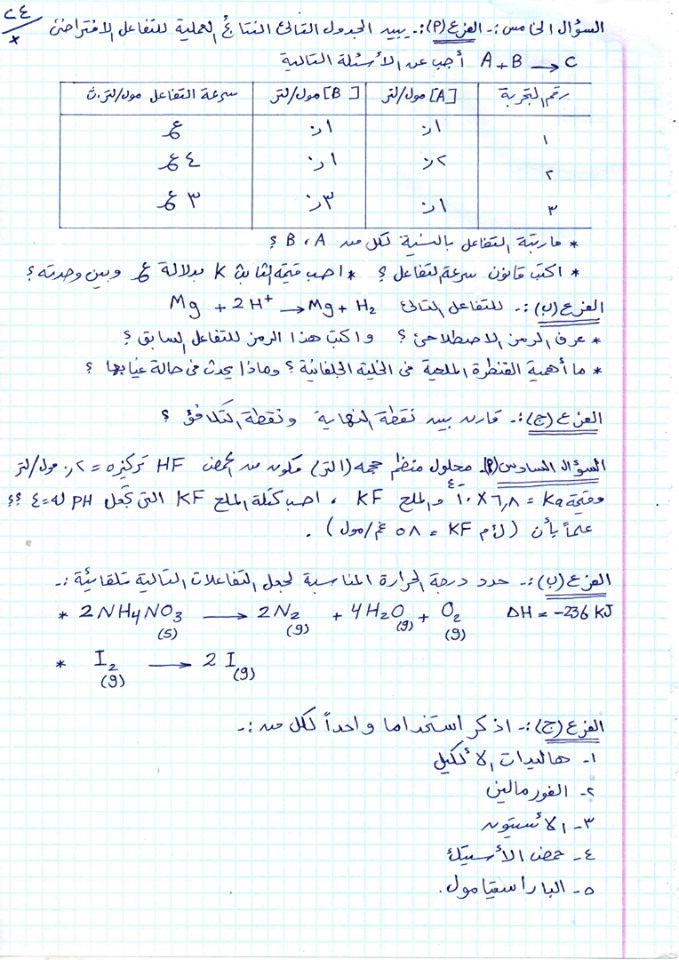 ٢٤
×
السؤال الخامس :- الفرع (P) :- يبين الجدول التالي النتائج العملية للتفاعل الافتراضي
A + B → C أجب عن الأسئلة التالية
رقم التجربة [A] مول/لتر [B] مول/لتر سرعة التفاعل مول/لتر.ث
١ ٠,١ ٠,١ ع
٢ ٠,٢ ٠,١ ٤ ع
٣ ٠,١ ٠,٣ ٣ ع
* ما رتبة التفاعل بالنسبة لكل من A ، B ؟
* اكتب قانون سرعة التفاعل ؟ * احسب قيمة الثابت K بدلالة ع وبين وحدته ؟
الفرع (ب) :- للتفاعل التالي Mg + 2H⁺ → Mg + H₂
* عرف الرمز الاصطلاحي ؟ واكتب هذا الرمز للتفاعل السابق ؟
* ما أهمية القنطرة الملحية في الخلية الجلفانية ؟ وماذا يحدث في حالة غيابها ؟
الفرع (ج) :- قارن بين نقطة النهاية ونقطة التكافؤ ؟
السؤال السادس (P) محلول منظم حجمه (١لتر) مكون من الحمض HF تركيزه = ٠,٢ مول/لتر
وقيمة Ka = ٦,٨ × ١٠⁻⁴ والملح KF ، احسب كتلة الملح KF التي تجعل PH له = ٤ ؟؟
علماً بأن (ك.م KF = ٥٨ غم/مول) .
الفرع (ب) :- حدد درجة الحرارة المناسبة لجعل التفاعلات التالية تلقائية :-
* 2NH₄NO₃ (s) → 2N₂ (g) + 4H₂O (g) + O₂ (g) ΔH = -236 KJ
* I₂ (g) → 2 I (g)
الفرع (ج) :- اذكر استخداما واحداً لكل من :-
١- هاليدات الألكيل
٢- الفورمالين
٣- الأسيتون
٤- حمض الأسيتيك
٥- الباراسيتامول.